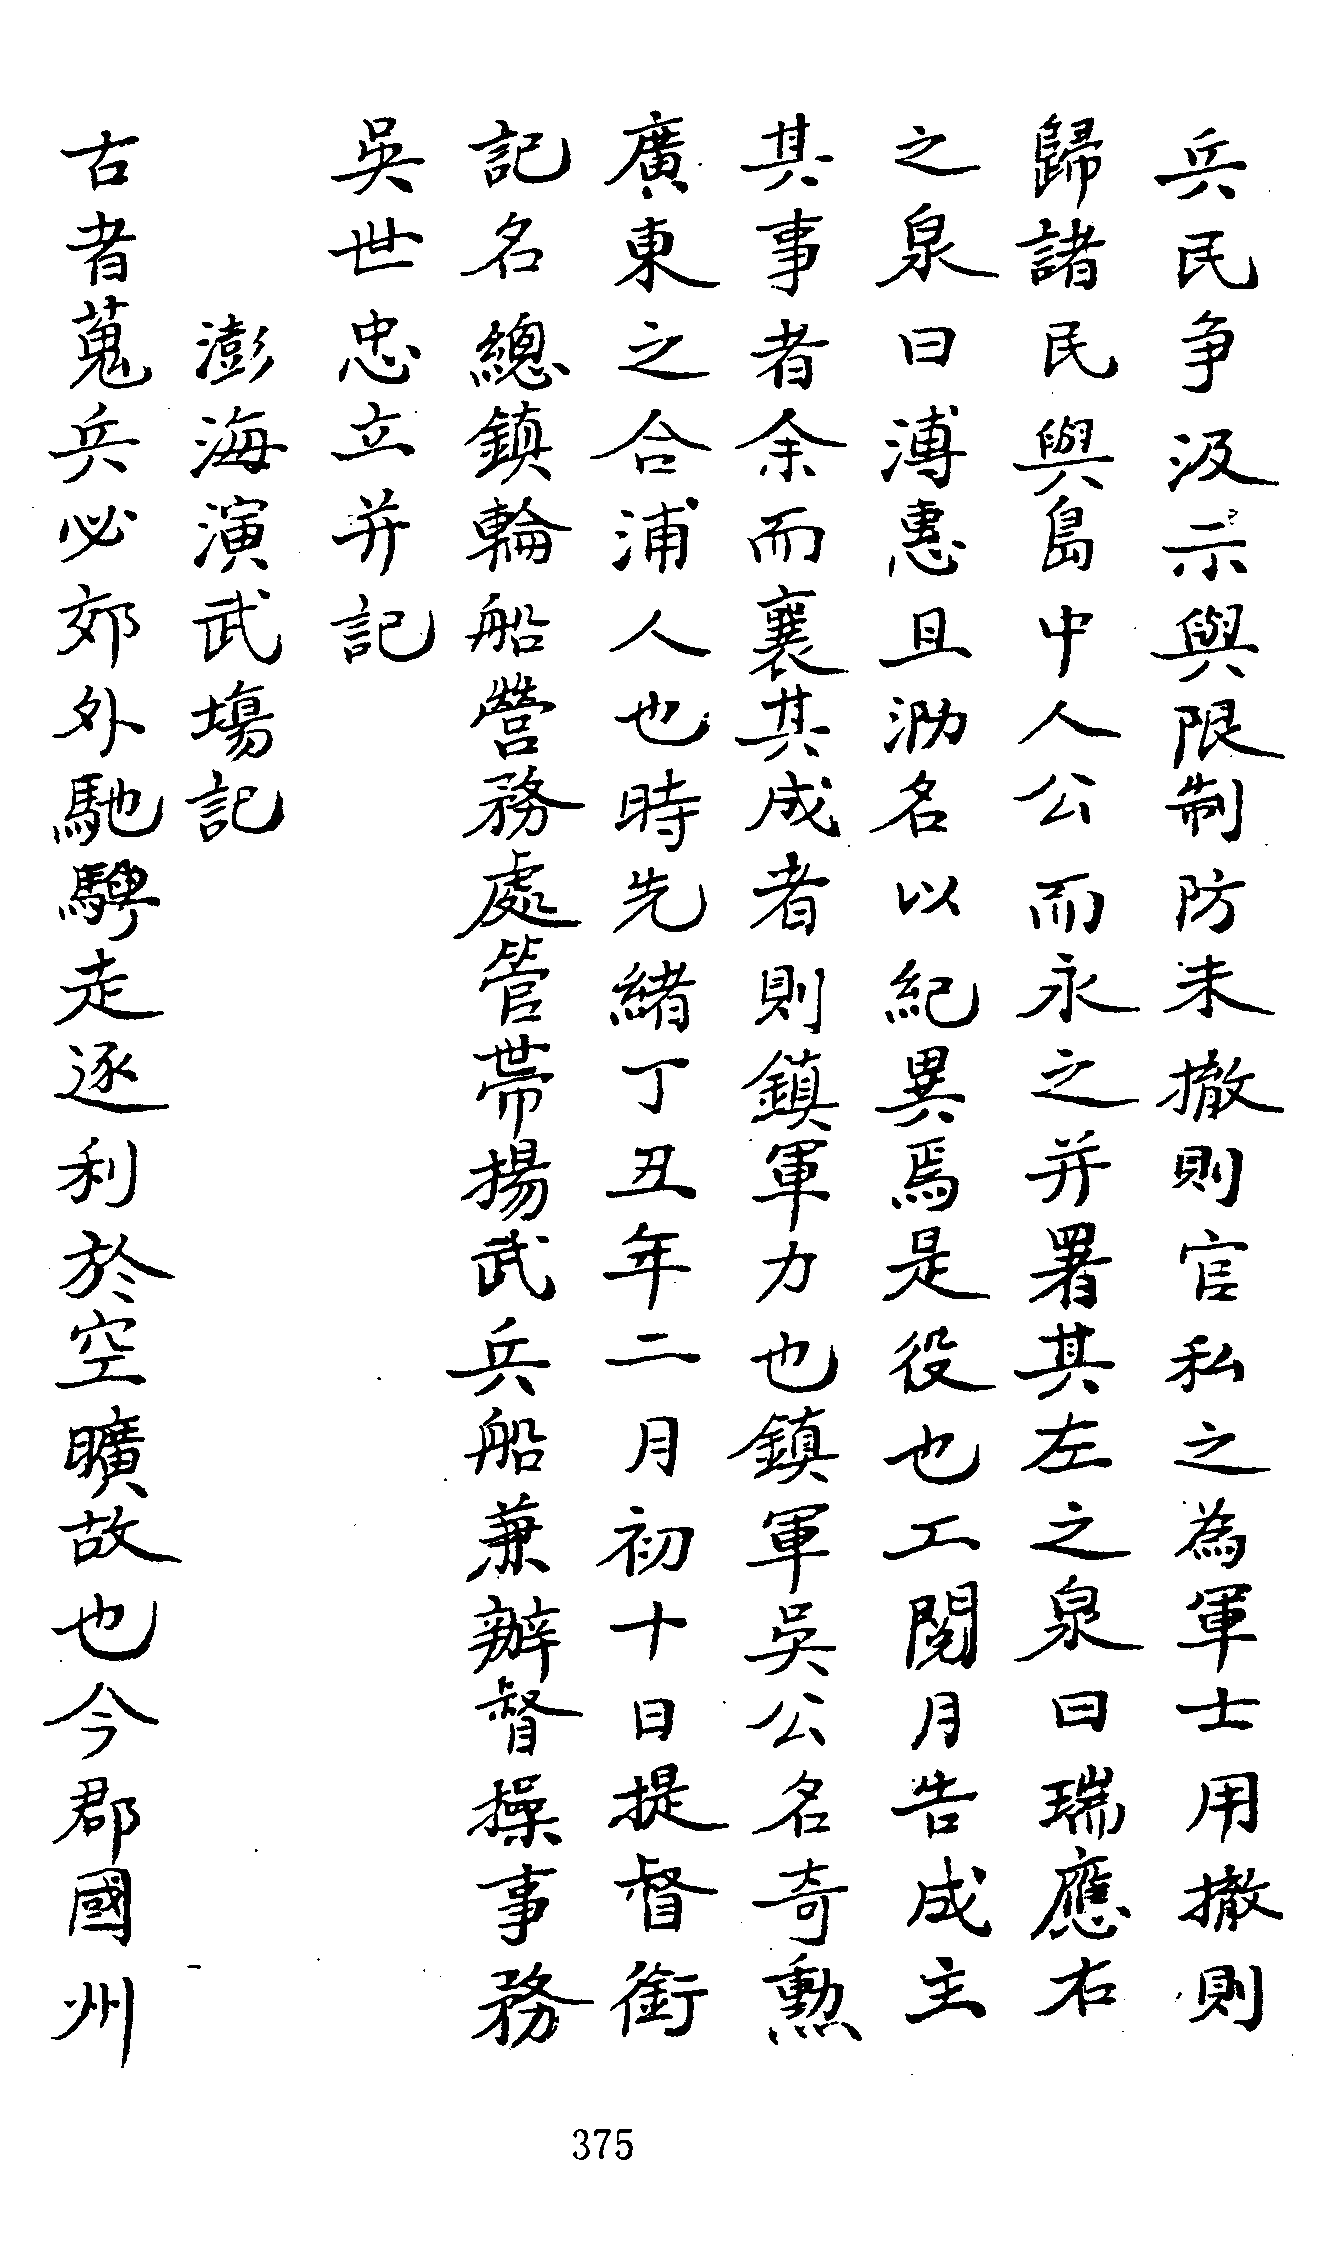 兵民争汲示與限制防未撤則官私之為軍士用撤則
歸諸民與島中人公而永之并署其左之泉曰瑞應右
之泉曰溥惠且泐名以紀異焉是役也工閱月告成主
其事者余而襄其成者則鎮軍力也鎮軍吳公名奇勲
廣東之合浦人也時先緒丁丑年二月初十日提督銜
記名總鎮輪船營務處管帶揚武兵船兼辦督操事務
吳世忠立并記
澎海演武塲記
古者蒐兵必郊外馳騁走逐利於空曠故也今郡國州
375